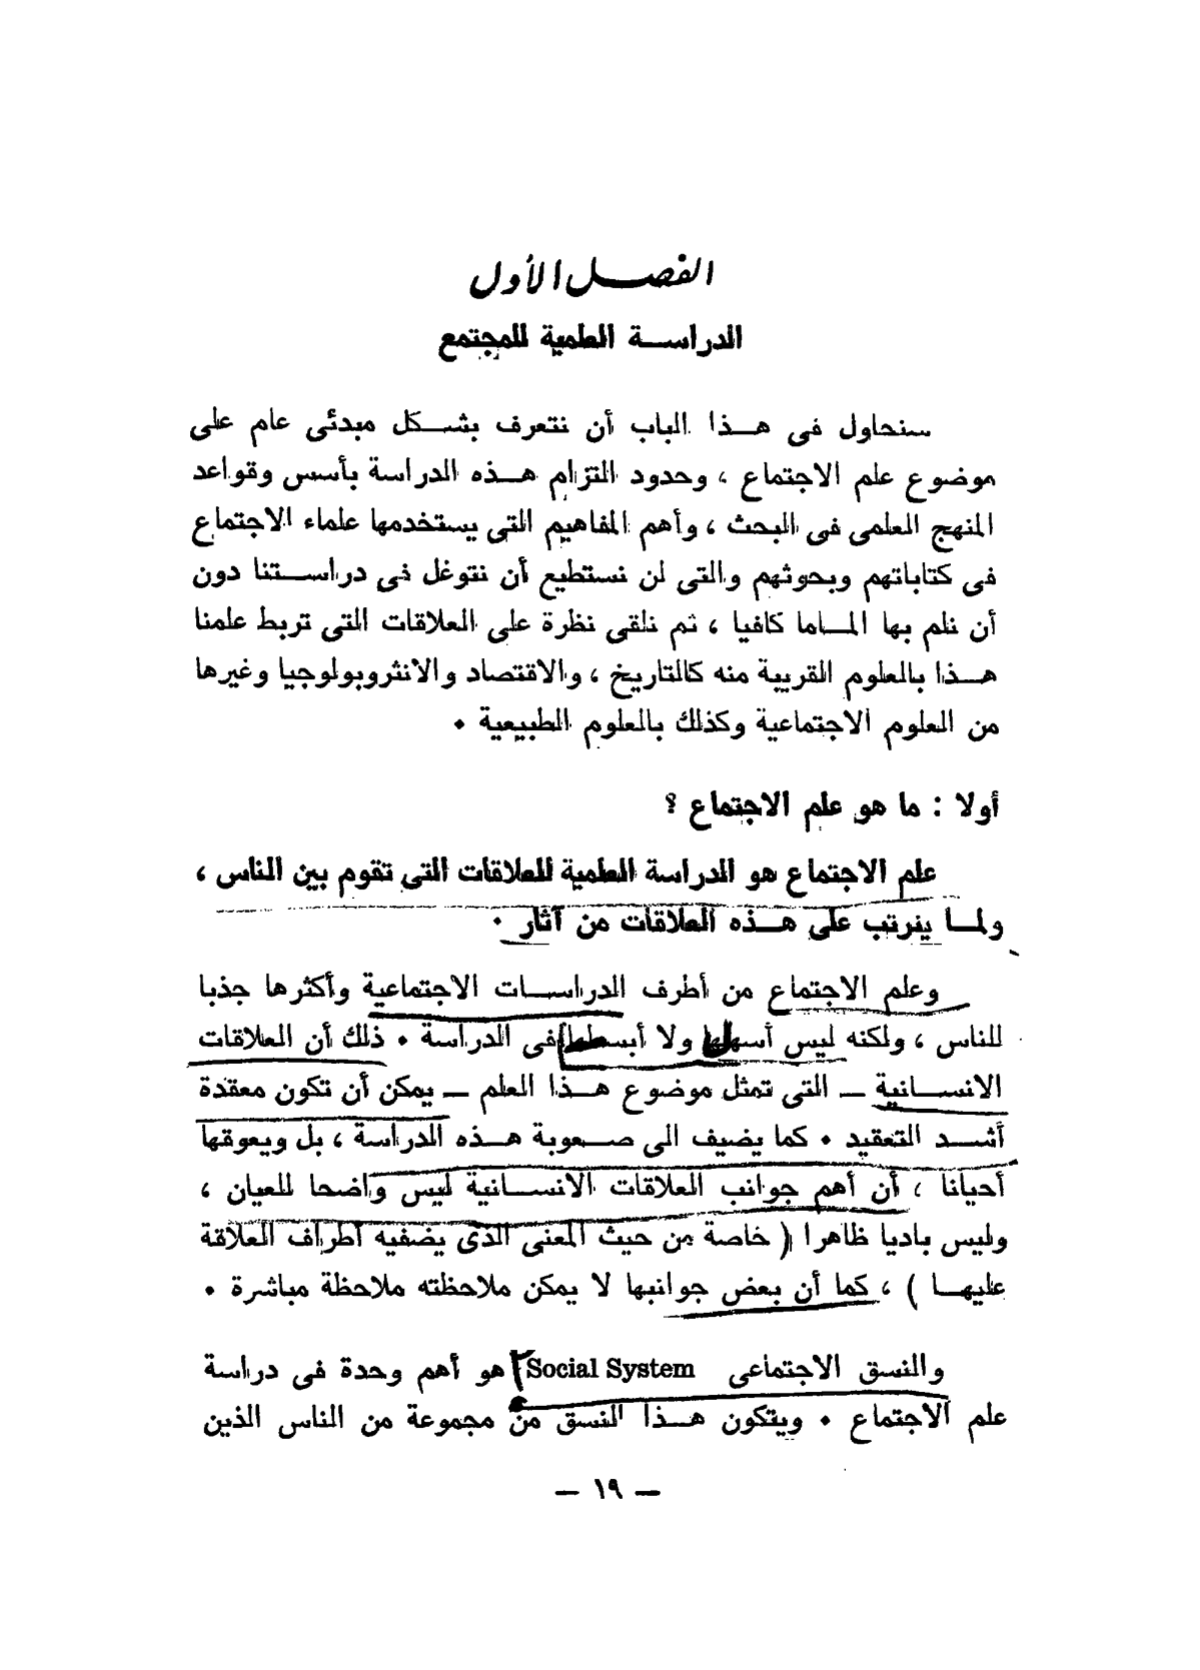 الفصل الأول
الدراسة العلمية للمجتمع
سنحاول فى هذا الباب أن نتعرف بشكل مبدئى عام على
موضوع علم الاجتماع ، وحدود التزام هذه الدراسة بأسس وقواعد
المنهج العلمى فى البحث ، وأهم المفاهيم التى يستخدمها علماء الاجتماع
فى كتاباتهم وبحوثهم والتى لن نستطيع أن نتوغل فى دراستنا دون
أن نلم بها الماما كافيا ، ثم نلقى نظرة على العلاقات التى تربط علمنا
هذا بالعلوم القريبة منه كالتاريخ ، والاقتصاد والانثروبولوجيا وغيرها
من العلوم الاجتماعية وكذلك بالعلوم الطبيعية •
أولا : ما هو علم الاجتماع ؟
علم الاجتماع هو الدراسة العلمية للعلاقات التى تقوم بين الناس ،
ولما يترتب على هذه العلاقات من آثار •
وعلم الاجتماع من أطرف الدراسات الاجتماعية وأكثرها جذبا
للناس ، ولكنه ليس أسهلها ولا أبسطها فى الدراسة • ذلك أن العلاقات
الانسانية — التى تمثل موضوع هذا العلم — يمكن أن تكون معقدة
أشد التعقيد • كما يضيف الى صعوبة هذه الدراسة ، بل ويعوقها
أحيانا ، أن أهم جوانب العلاقات الانسانية ليس واضحا للعيان ،
وليس باديا ظاهرا ( خاصة من حيث المعنى الذى يضفيه أطراف العلاقة
عليها ) ، كما أن بعض جوانبها لا يمكن ملاحظته ملاحظة مباشرة •
والنسق الاجتماعى Social System هو أهم وحدة فى دراسة
علم الاجتماع • ويتكون هذا النسق من مجموعة من الناس الذين
— ١٩ —